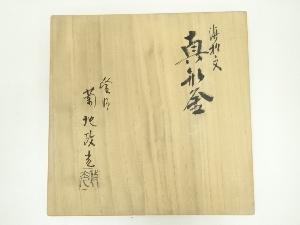 海松文
真形釜
釜師
菊地政光